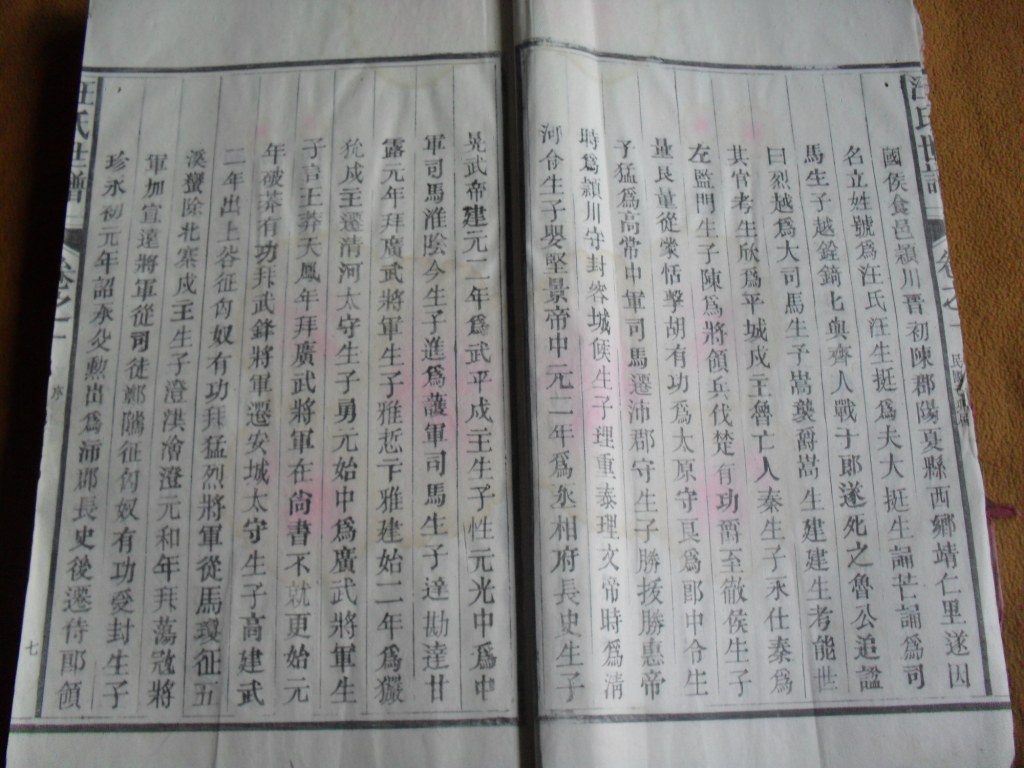 汪氏世譜
卷之一
國侯食邑潁川晋初陳郡陽夏縣西鄉靖仁里遂因
名立姓號爲汪氏汪生挺爲夫大挺生誦芒誦爲司
馬生子越銓錡七與齊人戰于郎遂死之魯公追謚
曰烈越爲大司馬生子嵩襲爵嵩生建建生考能世
其官考生欣爲平城戍王魯亡人秦生子永仕秦爲
左監門生子陳爲將領兵伐楚有功爵至徹侯生子
量良量從蒙恬擊胡有功爲太原守良爲郎中令生
子猛爲高帝中軍司馬遷沛郡守生子勝援勝惠帝
時爲潁川守封容城侯生子理重泰理文帝時爲清
河令生子嬰堅景帝中元二年爲丞相府長史生子
晃武帝建元二年爲武平戍主生子性元光中爲中
軍司馬淮陰令生子進爲護軍司馬生子達勘達甘
露元年拜廣武將軍生子雅悊于雅建始二年爲玁
狁戍主遷清河太守生子勇元始中爲廣武將軍生
子言王莽天鳳年拜廣武將軍在尙書不就更始元
年破莽有功拜武鋒將軍遷安城太守生子高建武
二年出上谷征匈奴有功拜猛烈將軍從馬瓊征五
溪蠻除北寨戍主生子澄淇澮澄元和年拜蕩冦將
軍加宣遠將軍從司徒鄭隲征匈奴有功受封生子
珍永初元年詔永父勲出爲沛郡長史後遷侍郎領
汪氏世譜
卷之一
序
七